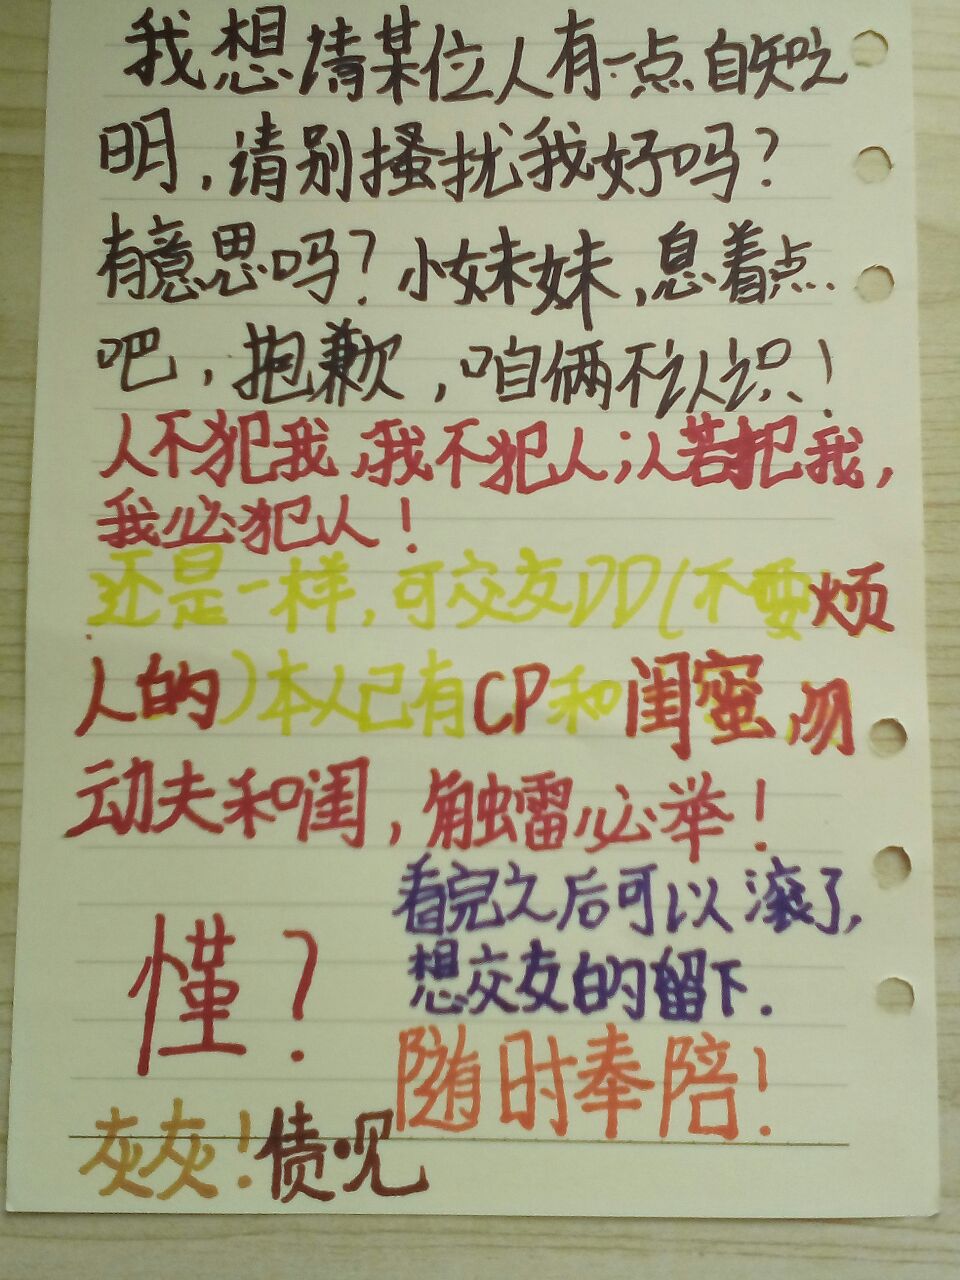 我想请某位人有一点自知之
明，请别搔扰我好吗？
有意思吗？小妹妹，息着点
吧，抱歉，咱俩不认识！
人不犯我，我不犯人；人若犯我，
我必犯人！
还是一样，可交友DD(不要烦
人的)本人已有CP和闺蜜，勿
动夫和闺，触雷必举！
看完之后可以滚了，
想交友的留下.
懂？
随时奉陪！
灰灰！